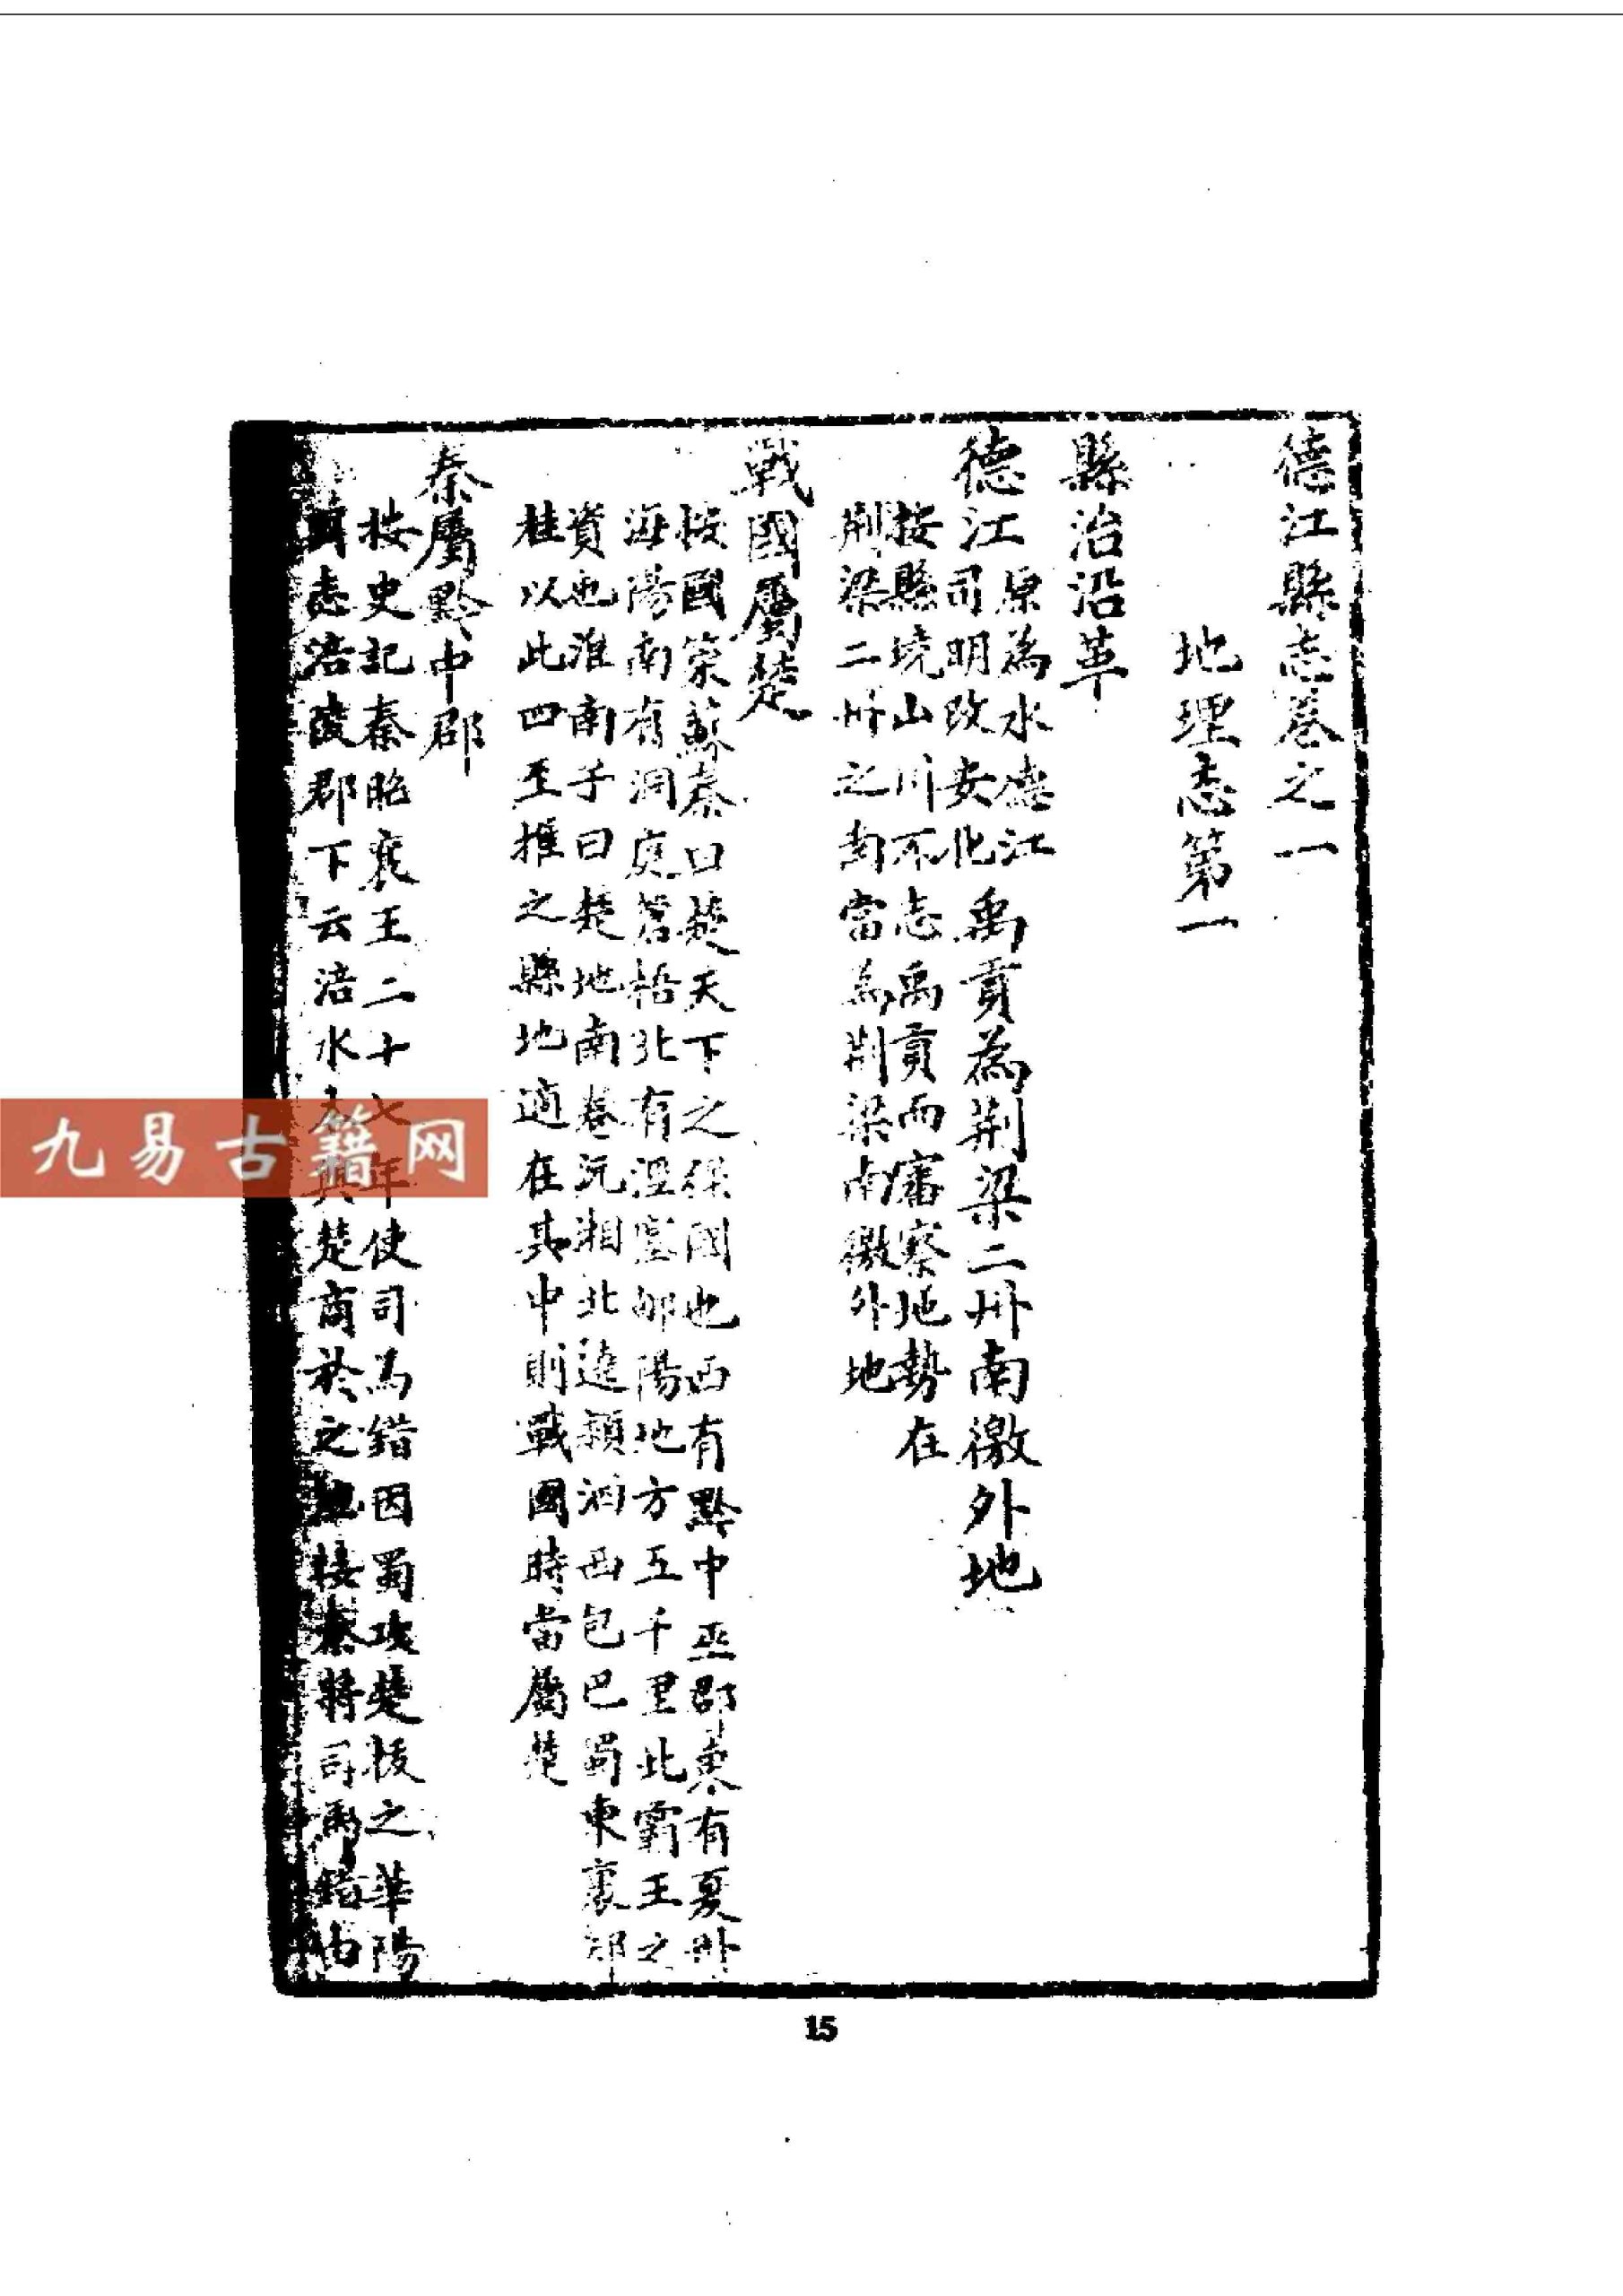 德江縣志卷之一
地理志第一
縣治沿革
德江原為水德江司明改安化禹貢為荆梁二州南徼外地
按縣境山川不志禹貢而審察地勢在
荆梁二州之南當為荆梁南徼外地
戰國屬楚
按國策蘇秦曰楚天下之强國也西有黔中巫郡東有夏州
海陽南有洞庭蒼梧北有涇塞郇陽地方五千里此霸王之
資也淮南子曰楚地南卷沅湘北遶頴泗西包巴蜀東裹郯
桂以此四至推之縣地適在其中則戰國時當屬楚
秦屬黔中郡
按史記秦昭襄王二十七年使司馬錯因蜀攻楚拔之華陽
國志涪陵郡下云涪水 與楚商於之地接秦將司馬錯由
九易古籍网
15